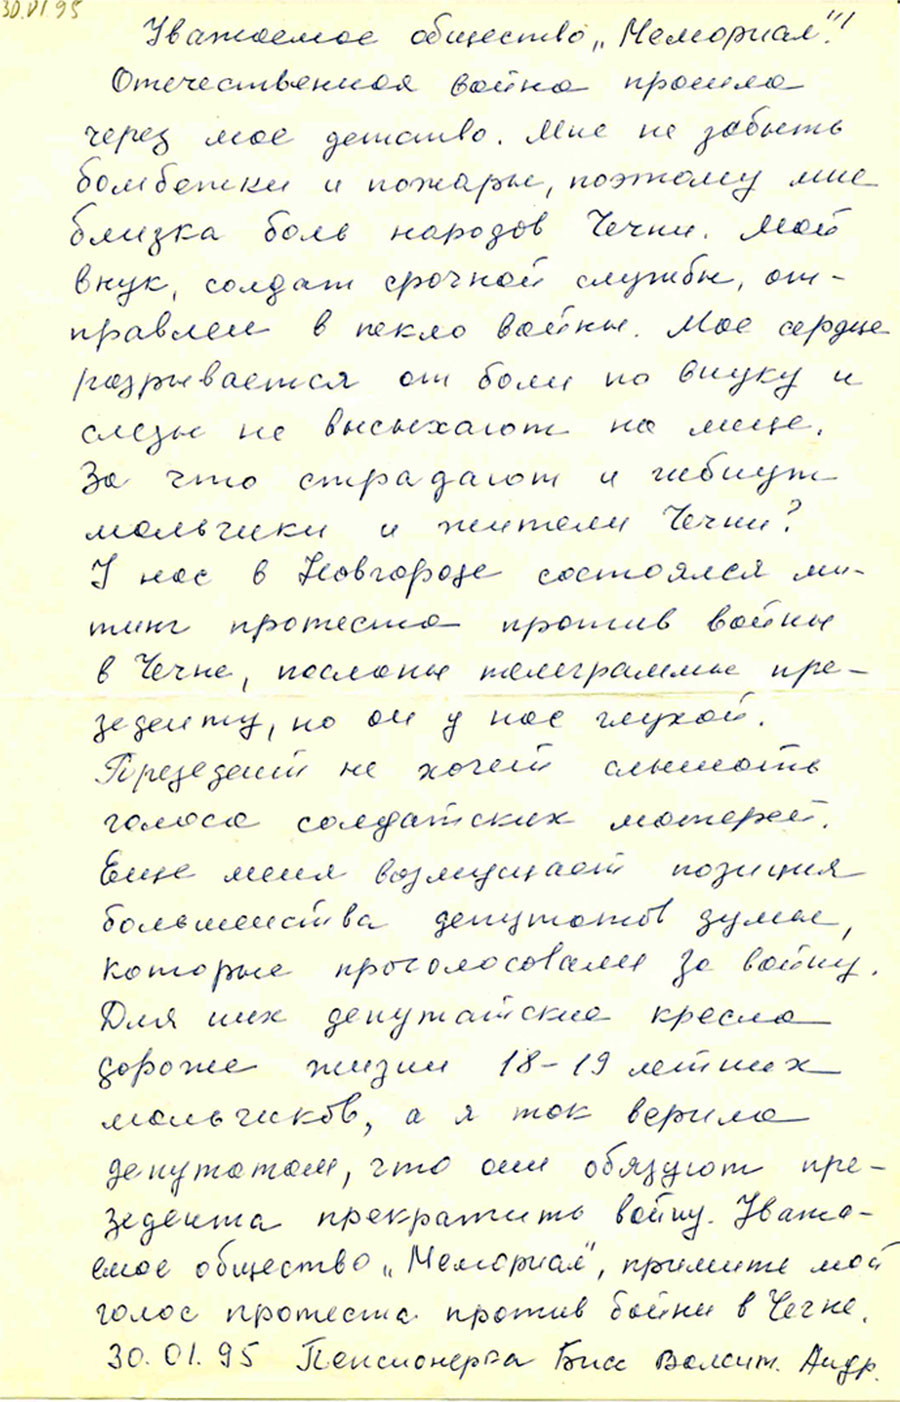 30.VI.95
Уважаемое общество „Мемориал"!
Отечественная война прошла
через мое детство. Мне не забыть
бомбежки и пожары, поэтому мне
близка боль народов Чечни. Мой
внук, солдат срочной службы, от-
правлен в пекло войны. Мое сердце
разрывается от боли по внуку и
слезы не высыхают на лице.
За что страдают и гибнут
мальчики и жители Чечни?
У нас в Новгороде состоялся ми-
тинг протеста против войны
в Чечне, посланы телеграммы пре-
зеденту, но он у нас глухой.
Презедент не хочет слышать
голоса солдатских матерей.
Еще меня возмущает позиция
большенства депутатов думы,
которые проголосовали за войну.
Для них депутатские кресла
дороже жизни 18-19 летних
мальчиков, а я так верила
депутатам, что они обязуют пре-
зедента прекратить войну. Уважа-
емое общество „Мемориал", примите мой
голос протеста против войны в Чечне.
30.01.95 Пенсионерка Бисс Валент. Андр.